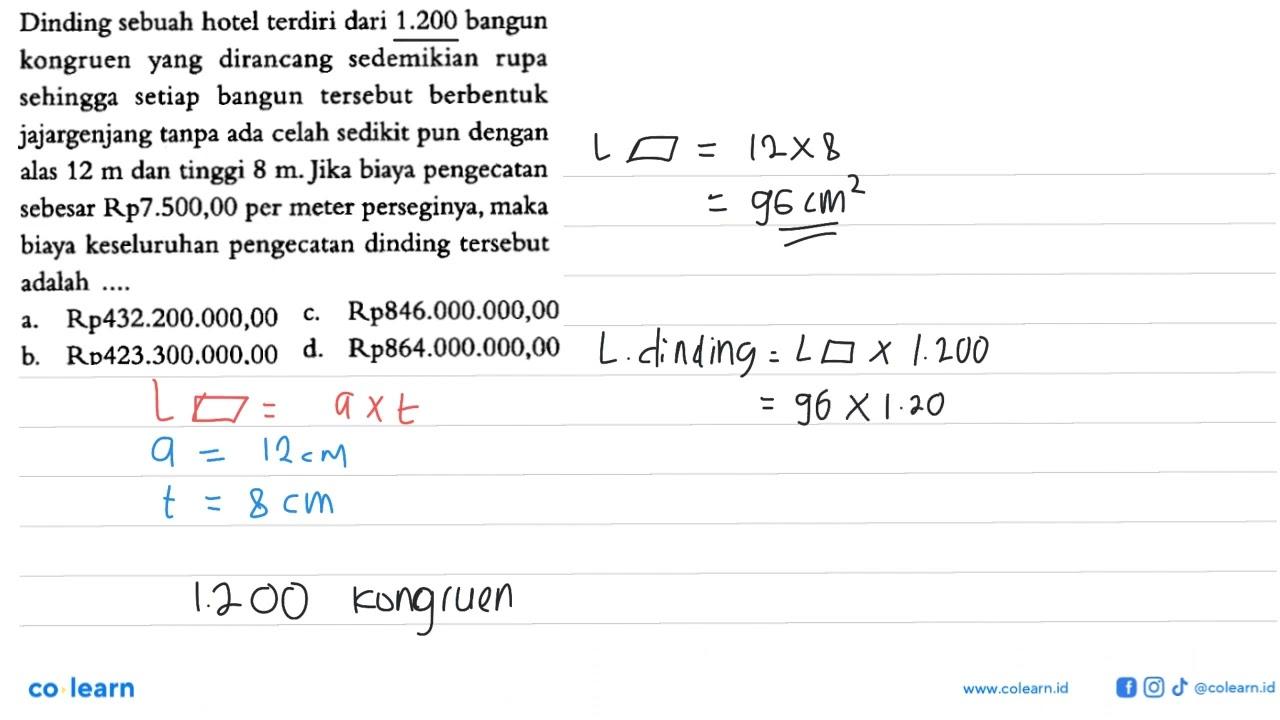 Dinding sebuah hotel terdiri dari 1.200 bangun
kongruen yang dirancang sedemikian rupa
sehingga setiap bangun tersebut berbentuk
jajargenjang tanpa ada celah sedikit pun dengan
alas 12 m dan tinggi 8 m. Jika biaya pengecatan
sebesar Rp7.500,00 per meter perseginya, maka
biaya keseluruhan pengecatan dinding tersebut
adalah ....
a. Rp432.200.000,00 c. Rp846.000.000,00
b. Rp423.300.000.00 d. Rp864.000.000,00
L ▱ = a x t
a = 12 cm
t = 8 cm
1.200 kongruen
L ▱ = 12 x 8
= 96 cm²
L. dinding = L ▱ x 1.200
= 96 x 1.20
co learn
www.colearn.id
@colearn.id